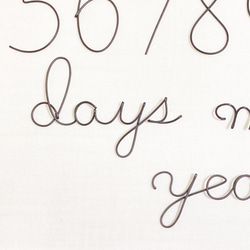 56/8
days m
yea